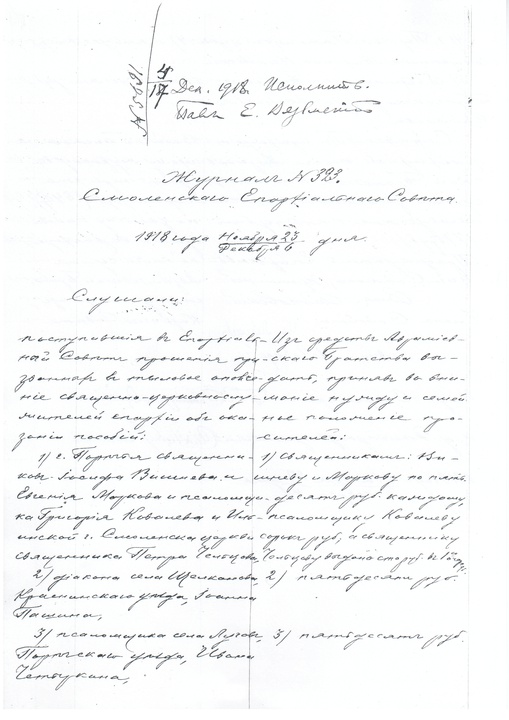 4/17 Дек. 1918. Исполнить.
Журналъ N 323.
Смоленскаго Епархіальнаго Совѣта.
1918 года Ноября 23 / Декабря 6 дня.
Слушали:
поступившія въ Епархіаль-
ный Совѣтъ прошенія при-
званнаг въ тыловое ополче-
ніе священно-церковнослу-
жителей епархіи объ ока-
заніи пособій:
1) г. Порѣчья священни-
ковъ Іосифа Вишнева и
Евгенія Маркова и псаломщи-
ка Григорія Ковалева и
г. Смоленска церкви
священника Петра Чельцова,
2) діакона села Щелканова,
Краснинскаго уѣзда, Іоанна
Пашина,
3) псаломщика села
Порѣчскаго уѣзда, Ивана
Изъ средствъ Авраміев-
скаго Братства вы-
дать, принявъ во вни-
маніе нужду и семей-
ное положеніе про-
сителей:
1) священникамъ: Ви-
шневу и Маркову по пять-
десятъ руб. каждому,
псаломщику Ковалеву
сорокъ руб, а священнику
Чельцову выдано сто руб.
2) пятьдесятъ руб.
3) пятьдесятъ руб.